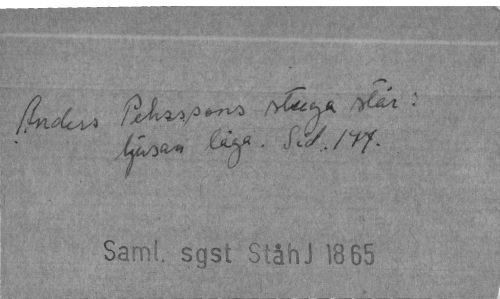 Anders Pehrssons stuga står i
ljusan låga. Sid. 144.
Saml. sgst StåhJ 1865